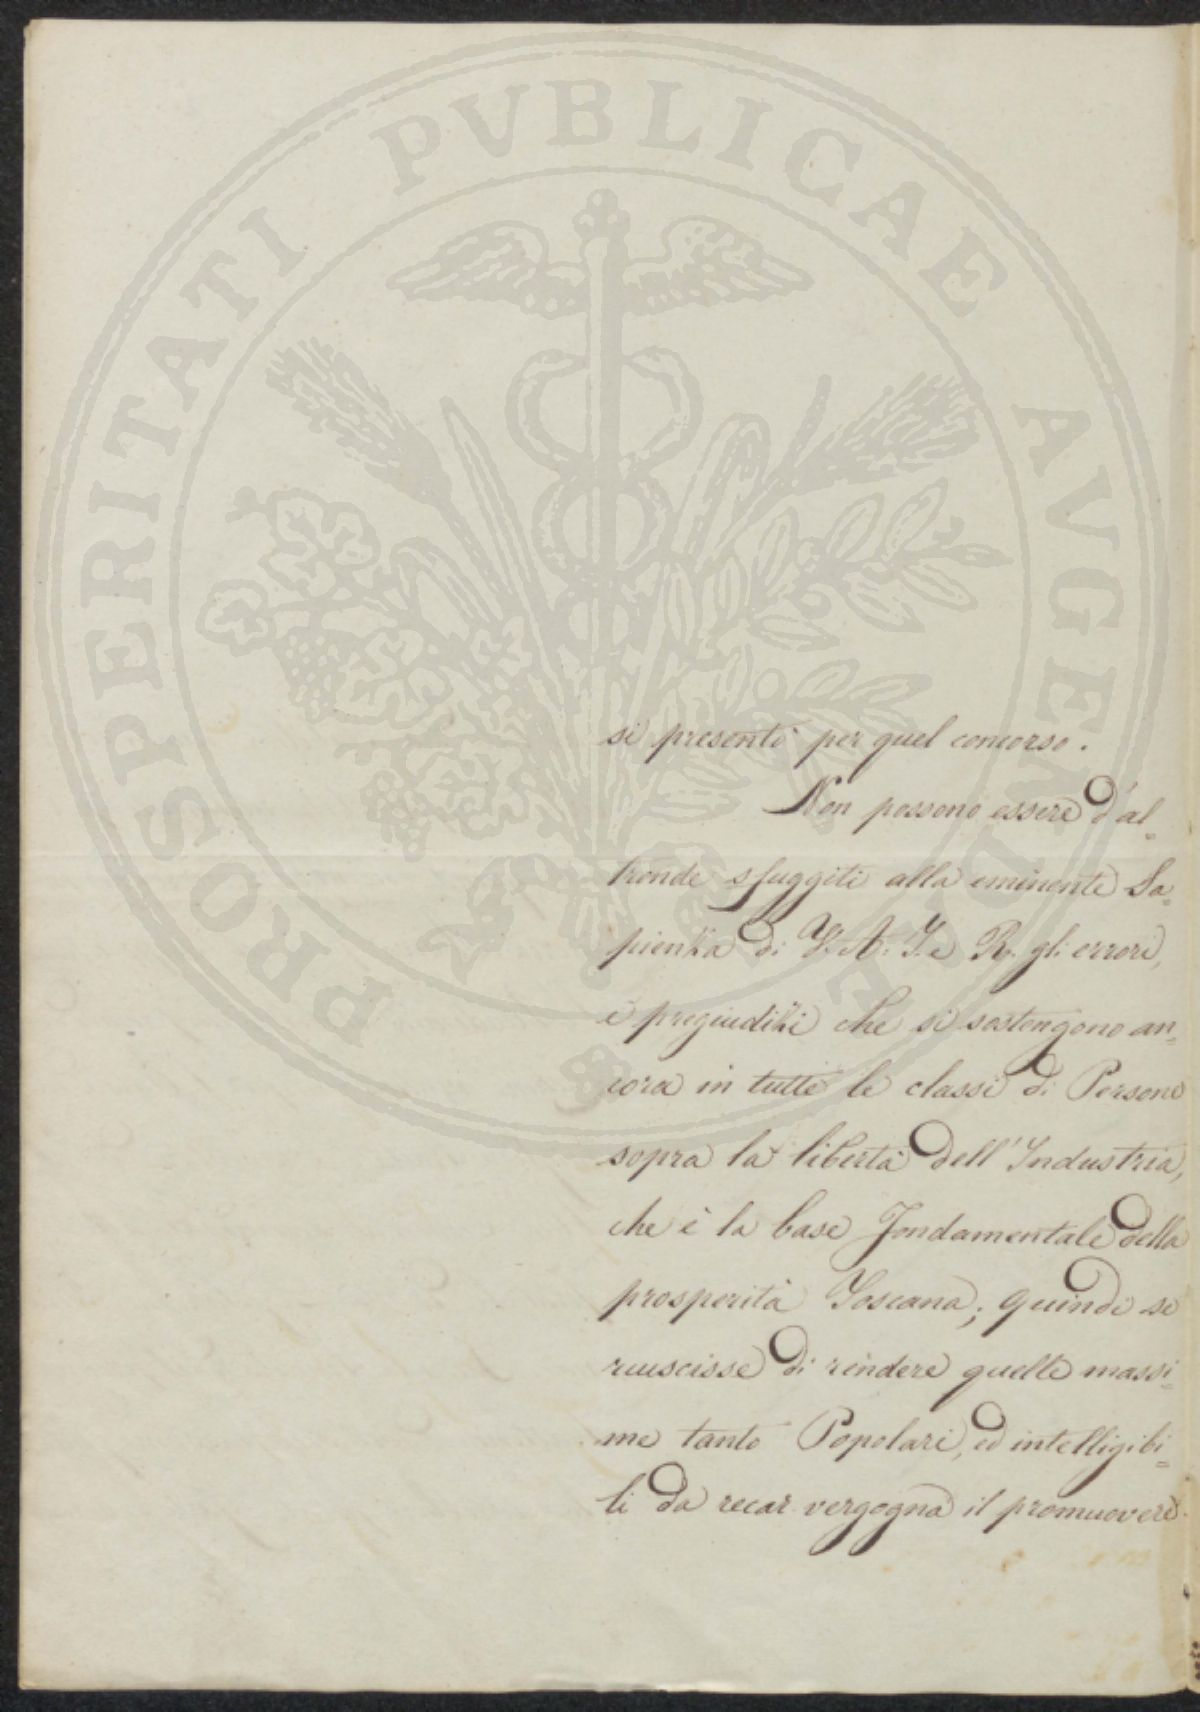 PROSPERITATI PVBLICAE AVGENDAE
si presentò per quel concorso.
Non possono essere d'al=
tronde sfuggiti alla eminente Sa=
pienza di V. A. I. e R. gli errori,
e pregiudizi che si sostengono an=
cora in tutte le classi di Persone
sopra la libertà dell'Industria,
che è la base fondamentale della
prosperità Toscana; quindi se
riuscisse di rendere quelle massi=
me tanto Popolari, ed intelligibi=
li da recar vergogna il promuovere